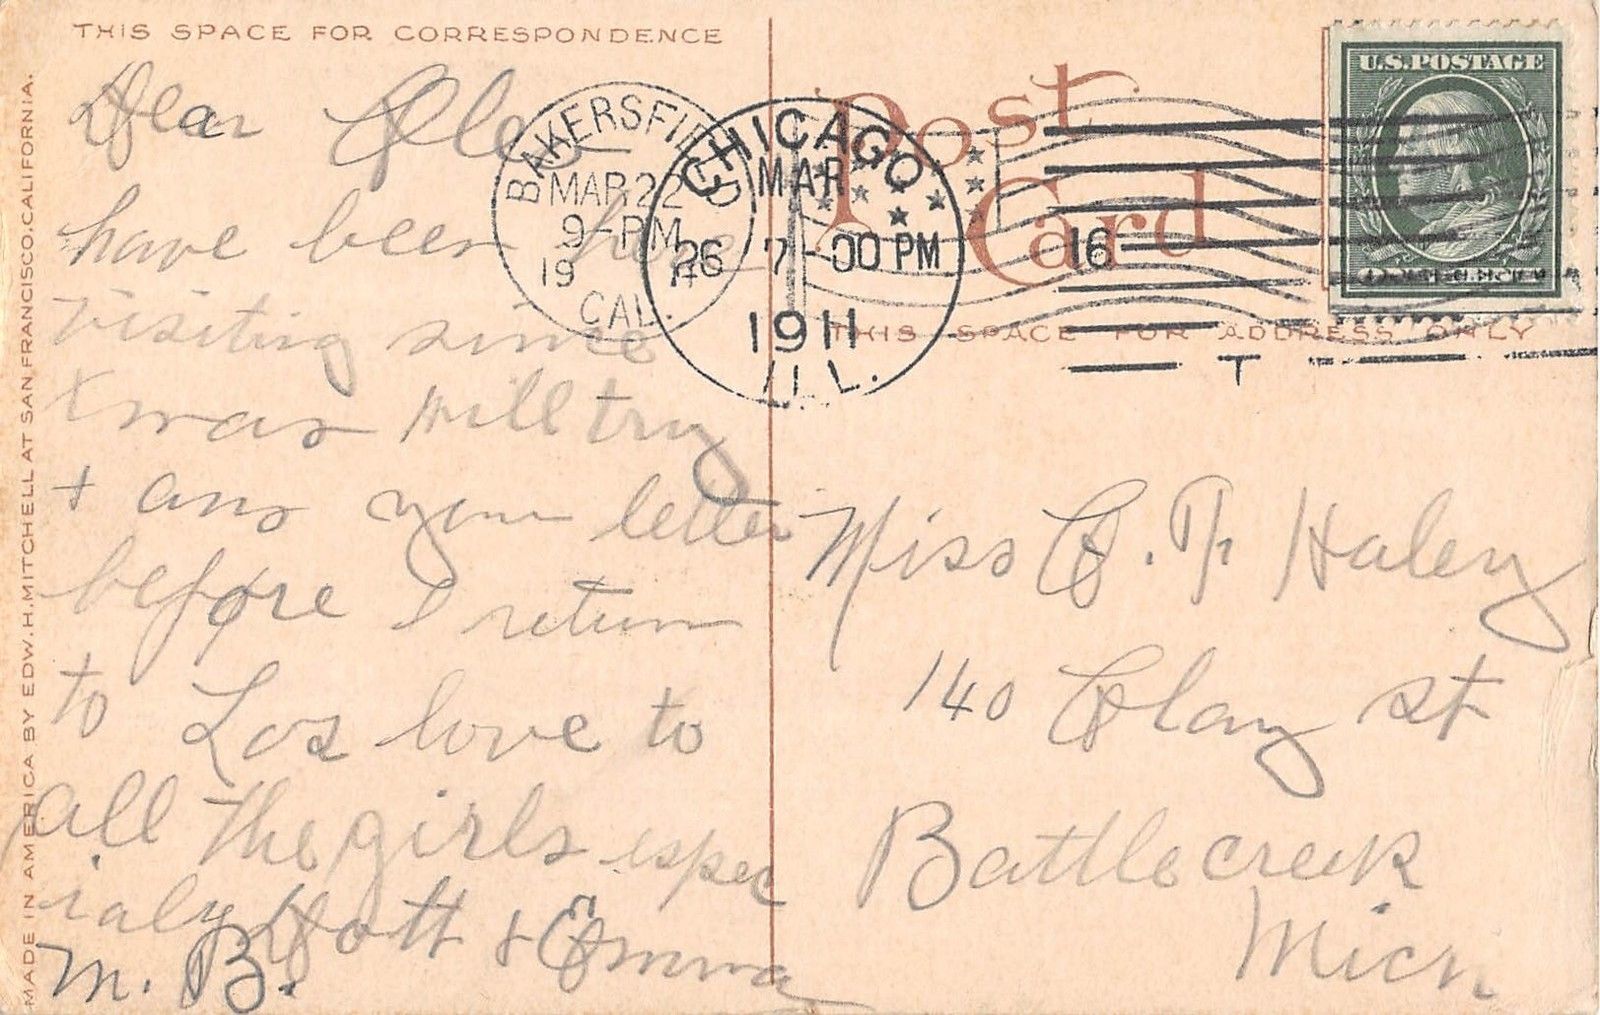 THIS SPACE FOR CORRESPONDENCE
Dear Cleo
have been here
visiting since
Xmas Will try
+ ans your letter
before I return
to Los love to
all the girls espec
ialy Dott & Emma
M. B.
MADE IN AMERICA BY EDW. H. MITCHELL AT SAN FRANCISCO, CALIFORNIA.
BAKERSFIELD
MAR 22
9-PM
19
CAL.
CHICAGO
MAR
26 7-00 PM
1911
ILL.
16
T
Post
Card
U.S. POSTAGE
THIS SPACE FOR ADDRESS ONLY
Miss C. T. Haley
140 Clay st
Battlecreek
Mich